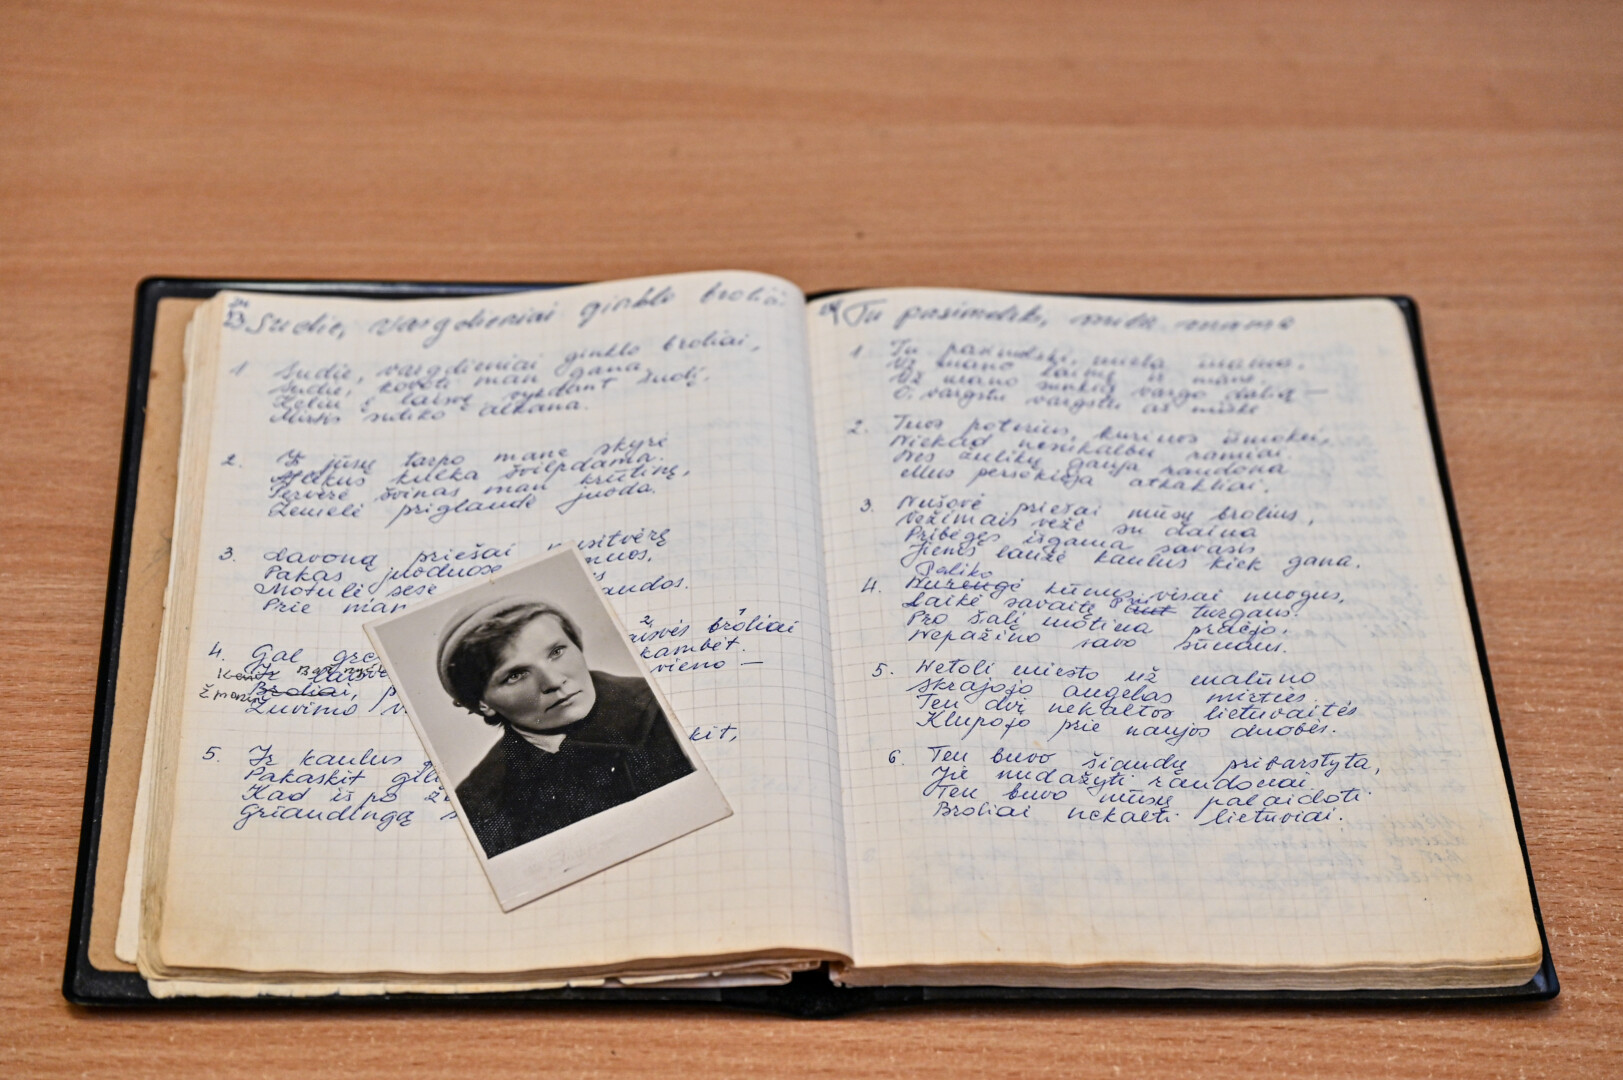 23 Sudie, vargdieniai ginklo broliai
1 Sudie, vargdieniai ginklo broliai,
Sudie, kovoti man gana
Kelių į laisvę vykdant žudė,
Mirtis sutiko alkana.
2. Iš jūsų tarpo mane skyrė
Atlėkus kulka švilpdama.
Pervėrė švinas man krūtinę,
Žemelė priglaudė juoda.
3. Lavoną priešai nusitvėrę
Pakas juoduose
Motulė sesė
Prie man
4. Gal gre laisvės broliai
kambėt.
Broliai, p vieno —
Žuvimo v
5. Ir kaulus kit,
Pakaskit gil
Kad iš po že
Griaudingą s
24 Tu pasimelsk, miela mama
1 Tu pasimelski, miela mama,
Už mano laimę ir mane,
Už mano sunkią vargo dalią —
O, vargstu vargstu aš miške
2. Tuos poterius, kuriuos išmokei,
Niekad nesukalbu ramiai.
Nes žulikų gauja raudona
Mus persekioja atkakliai.
3. Nušovė priešai mūsų brolius,
Vežimais vežė su daina
Pribėgęs išgama savasis
Jiems laužė kaulus kiek gana.
Paliko
4. Nurengė kūnus visai nuogus,
Laikė savaitę Prie ant turgaus.
Pro šalį motina praėjo,
Nepažino savo sūnaus.
5. Netoli miesto už malūno
Skrajojo angelas mirties.
Ten dvi nekaltos lietuvaitės
Klūpojo prie naujos duobės.
6. Ten buvo šiaudų pribarstyta,
Jie nudažyti raudonai.
Ten buvo mūsų palaidoti
Broliai nekalti lietuviai.